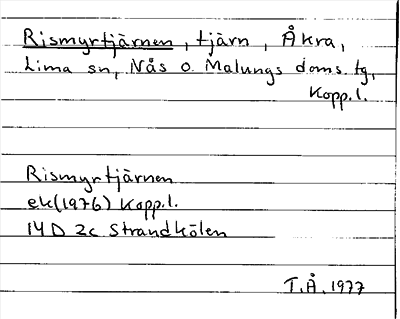 Rismyrtjärnen, tjärn, Åkra,
Lima sn, Nås o. Malungs doms. tg,
Kopp. l.
Rismyrtjärnen
ek(1976) Kopp. l.
14 D 2c Strandkölen
T. Å. 1977